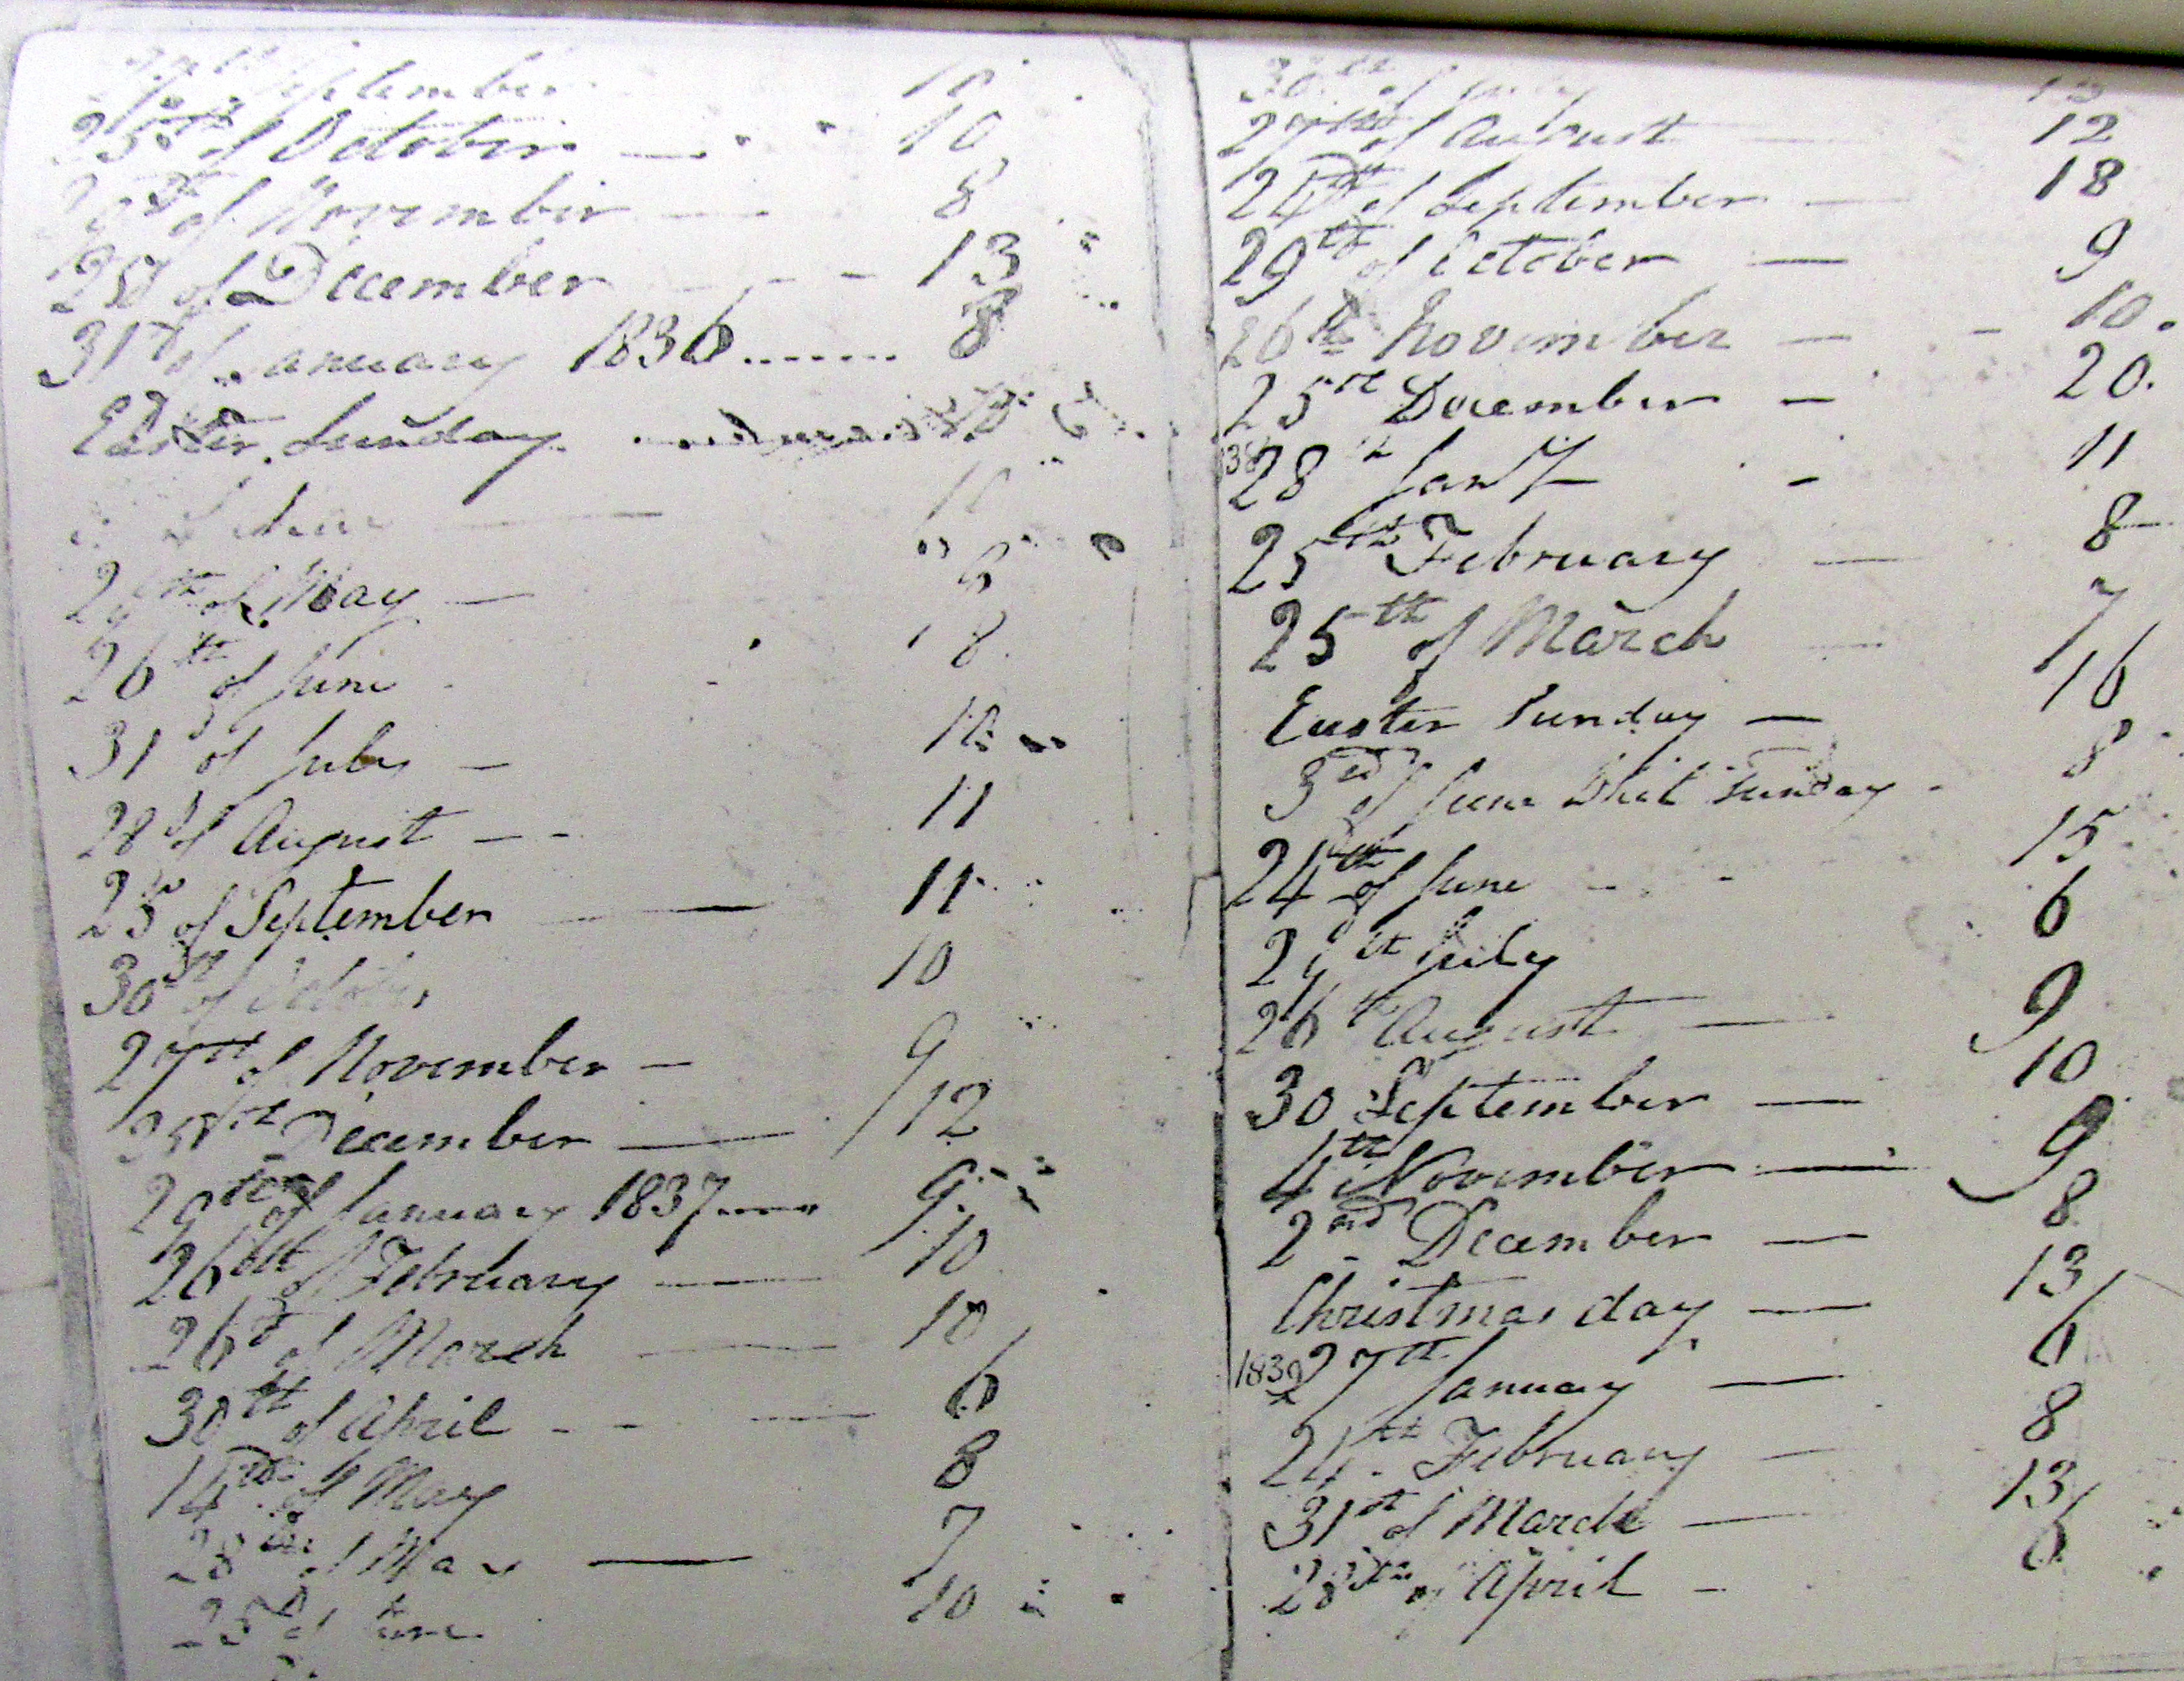 September 10
25th of October — 10
of November — 8
25 of December - - 13
31st of January 1836 ....... 8
Easter Sunday
29th of May — 8
26th of June 8
31 of July — 10
28 of August - - 11
25 of September — 11
30th of October 10
27th of November — 9
25th December — 12
29th of January 1837 ..... 9
26th of February — 10
26th of March — 10
30th of April - - — 6
14th of May 8
28th of May — 7
25th of June 10
30th of July 13
27th of August — 12
24th of September — 18
29th of October — 9
26th November — - 10.
25th December — 20.
38 28th Jany - 11
25th February — 8
25th of March — 7
Easter Sunday — 16
3rd of June Whit Sunday - 8
24th of June - - 15
29th July 6
26th August — 9
30 September — 10
4th November — 9
2nd December — 8
Christmas day — 13
1839 27th January — 6
24th February — 8
31st of March — 13
28th of April - 6